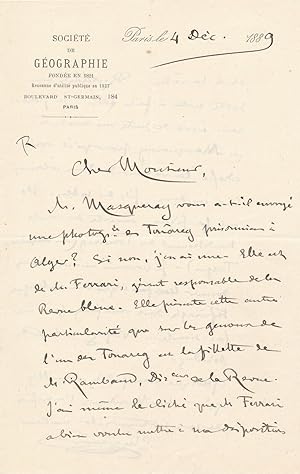 SOCIÉTÉ
DE
GÉOGRAPHIE
FONDÉE EN 1821
Reconnue d'utilité publique en 1827
BOULEVARD ST-GERMAIN, 184
PARIS
Paris, le 4 Déc. 1889
R
Cher Monsieur,
M. Masqueray vous a-t-il envoyé
une photogie de Touareg prisonniers à
Alger? Si non, j'en ai une. Elle est
de M. Ferrari, gérant responsable de la
Revue bleue. Elle présente cette autre
particularité que sur les genoux de
l'un des Touareg est la fillette de
M. Rambaud, Dir de la Revue.
J'ai même le cliché que M. Ferrari
a bien voulu mettre à ma disposition